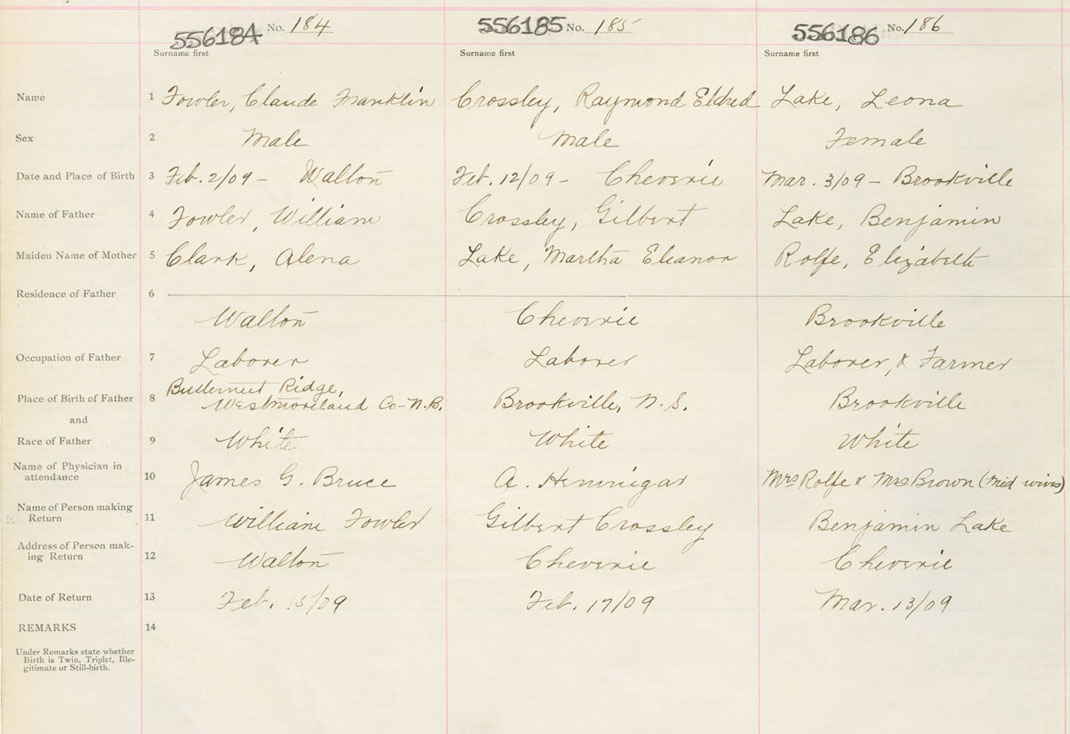 556184 No. 184 556185 No. 185 556186 No. 186
Surname first Surname first Surname first
Name 1 Fowler, Claude Franklin Crossley, Raymond Eldred Lake, Leona
Sex 2 Male Male Female
Date and Place of Birth 3 Feb. 2/09 - Walton Feb. 12/09 - Cheverie Mar. 3/09 - Brookville
Name of Father 4 Fowler, William Crossley, Gilbert Lake, Benjamin
Maiden Name of Mother 5 Clark, Alena Lake, Martha Eleanor Rolfe, Elizabeth
Residence of Father 6
Walton Cheverie Brookville
Occupation of Father 7 Laborer Laborer Laborer, & Farmer
Butternut Ridge,
Place of Birth of Father 8 Westmoreland Co-N.B. Brookville, N.S. Brookville
and
Race of Father 9 White White White
Name of Physician in
attendance 10 James G. Bruce A. Henninger Mrs Rolfe & Mrs Brown (mid wives)
Name of Person making
Return 11 William Fowler Gilbert Crossley Benjamin Lake
Address of Person mak-
ing Return 12 Walton Cheverie Cheverie
Date of Return 13 Feb. 15/09 Feb. 17/09 Mar. 13/09
REMARKS 14
Under Remarks state whether
Birth is Twin, Triplet, Ille-
gitimate or Still-birth.